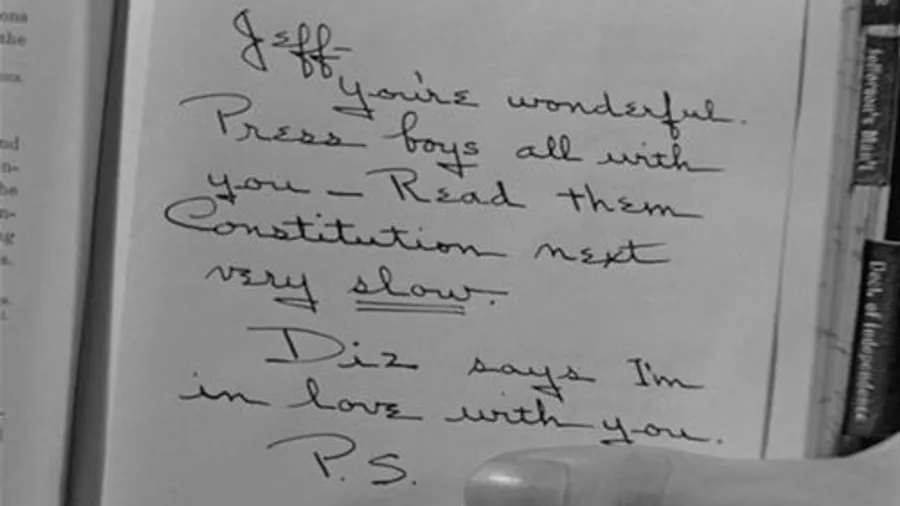 ons
the
Jeff-
you're wonderful.
Press boys all with
you – Read them
Constitution next
very slow.
Diz says I'm
in love with you.
P.S.
nd
n-
be
n-
ng
Jefferson's Man'l
Decl. of Independence